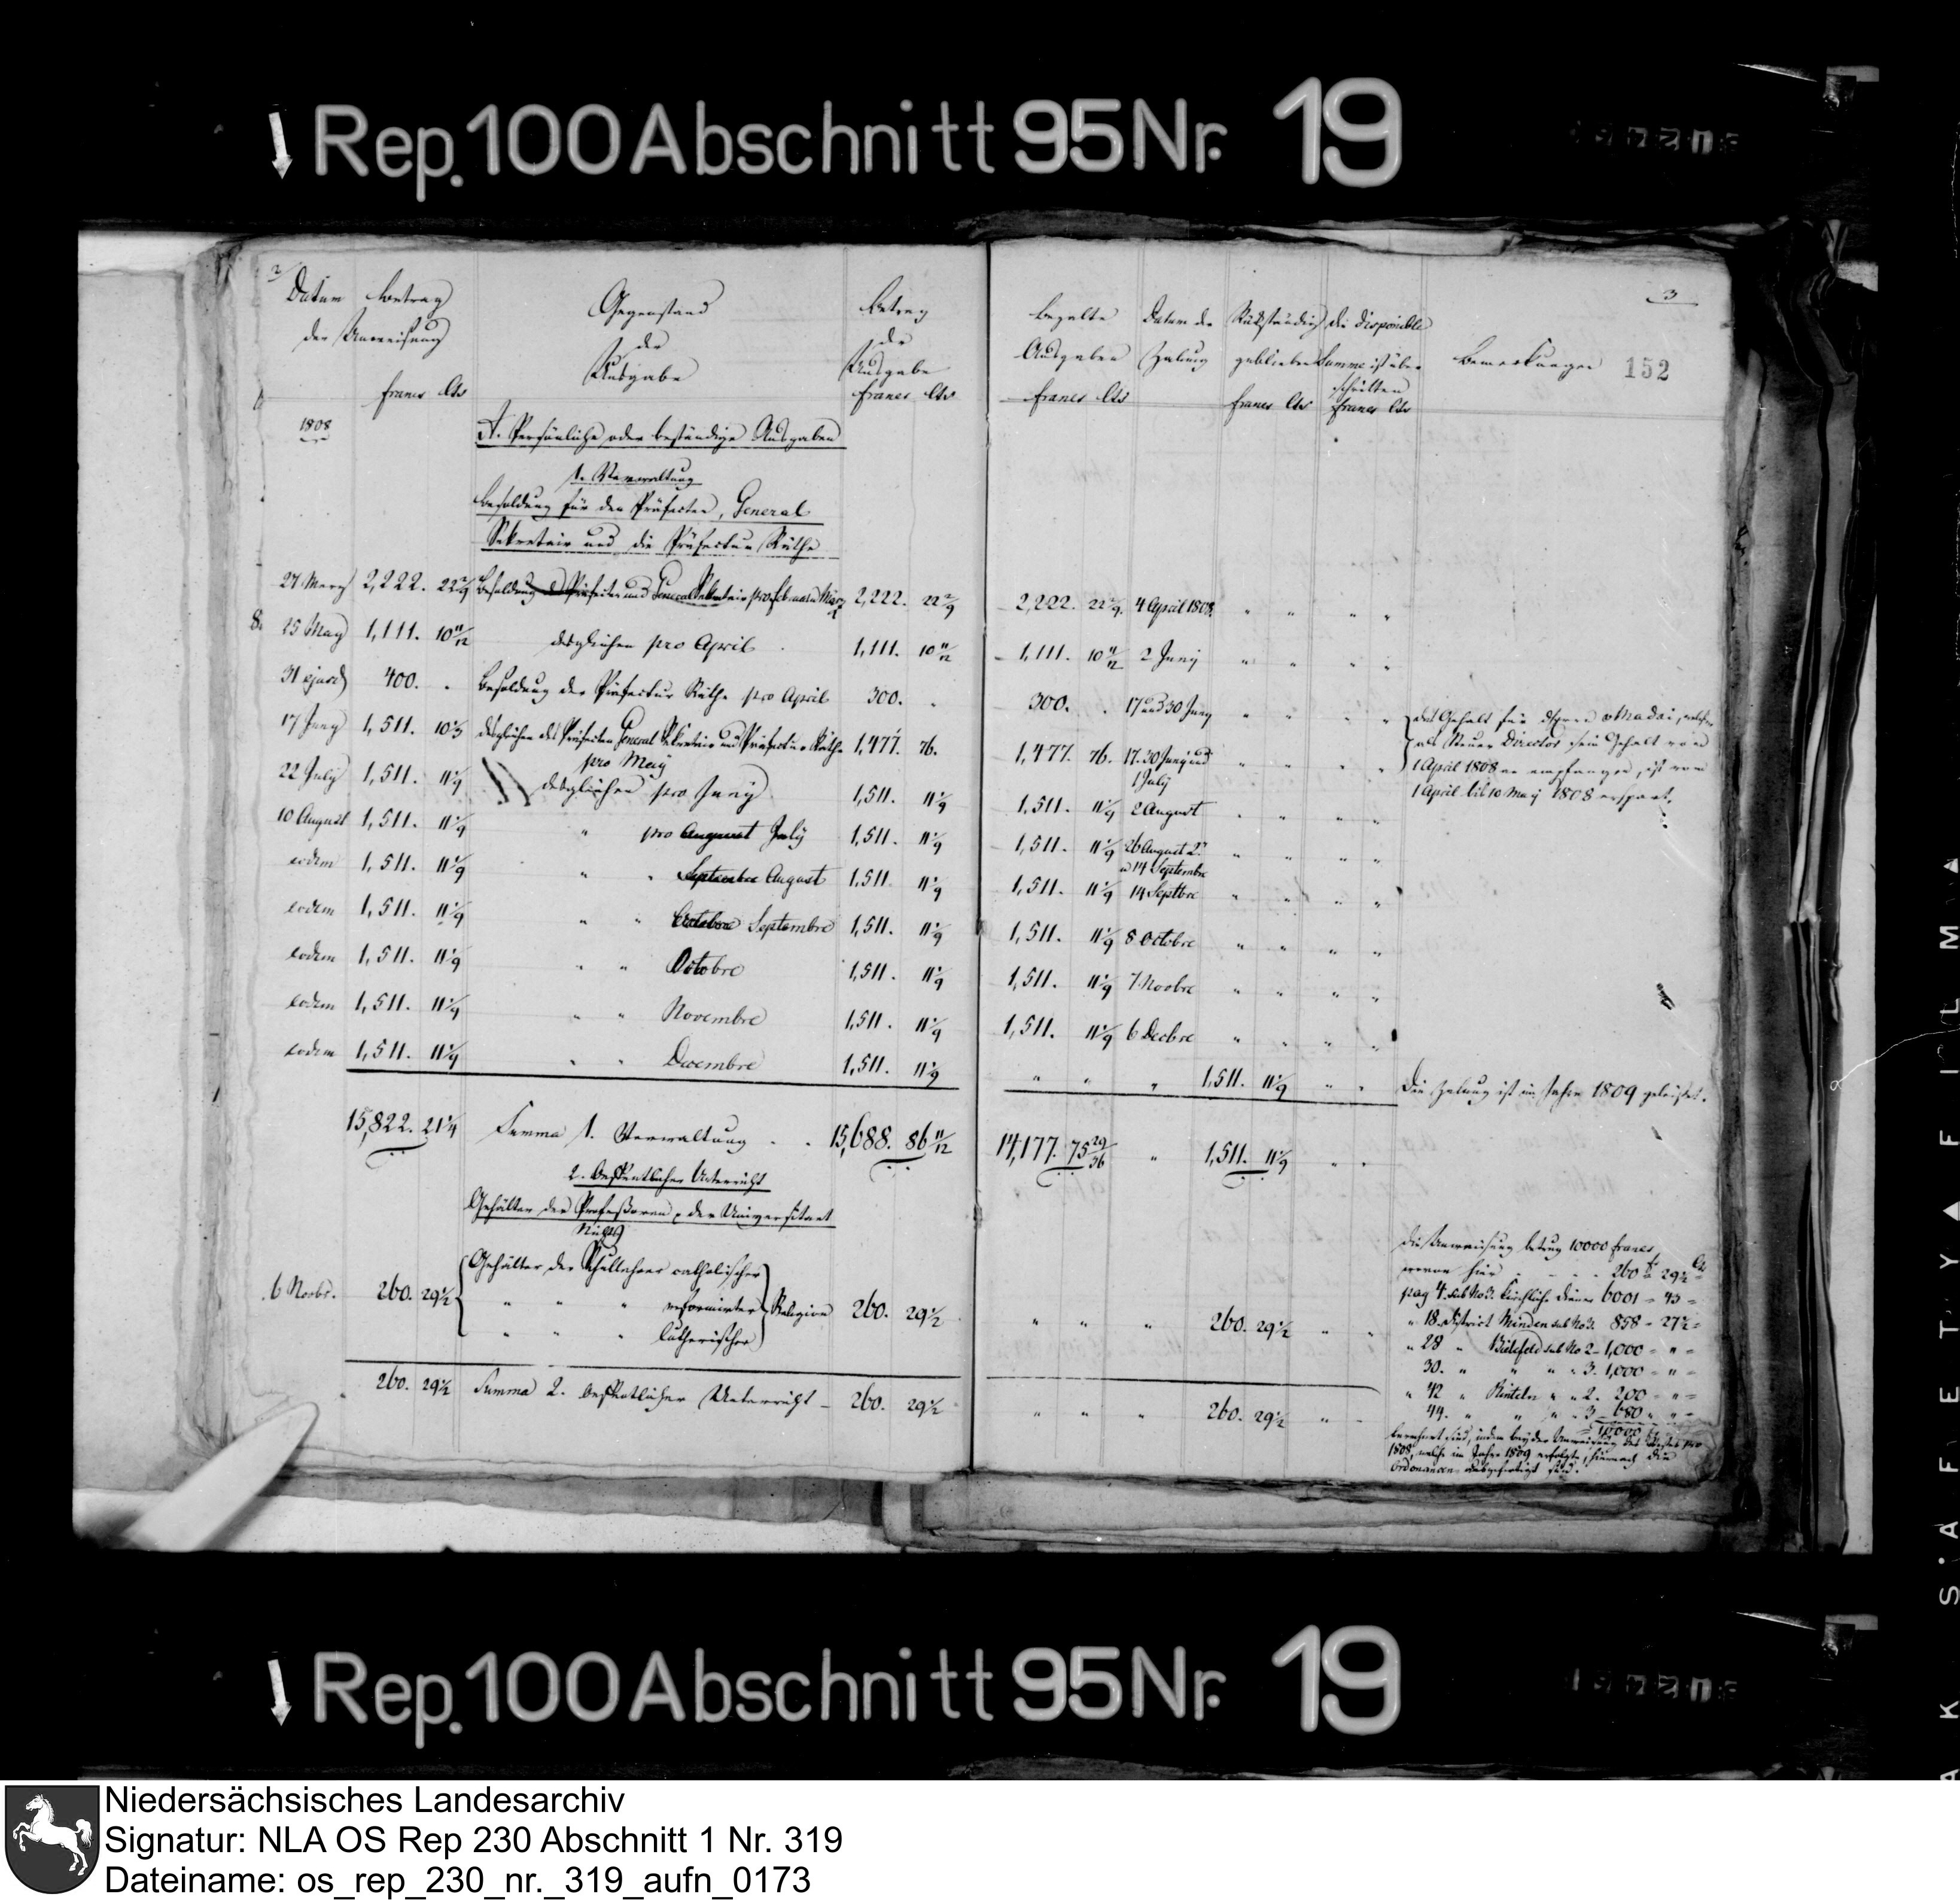 Rep. 100 Abschnitt 95 Nr. 19
2
Datum Betrag
der Anweisung
francs cts
Gegenstand
der
Ausgabe
Betrag
der
Ausgabe
francs cts
1808
A. Persönliche oder beständige Ausgaben
1. Verwaltung
Besoldung für den Präfecten, General
Sekretair und die Präfectur Räthe
27 Merz 2,222. 22 2/9 Besoldung Präfecten und General Sekretair pro Februar u März 2,222. 22 2/9
8. 25 May 1,111. 10 11/12 desgleichen pro April 1,111. 10 11/12
31 ejusd 400. Besoldung der Präfectur Räthe pro April 300.
17 Juny 1,511. desgleichen des Präfecten General Sekretair und Präfectur Räthe 1,477. 76.
pro May
22 July 1,511. 11 1/9 desgleichen pro Juny 1,511. 11 1/9
10 August 1,511. 11 1/9 " pro August July 1,511. 11 1/9
eodem 1,511. 11 1/9 " " Septembre August 1,511. 11 1/9
eodem 1,511. 11 1/9 " " Octobre Septembre 1,511. 11 1/9
eodem 1,511. 11 1/9 " " Octobre 1,511. 11 1/9
eodem 1,511. 11 1/9 " " Novembre 1,511. 11 1/9
eodem 1,511. 11 1/9 " " Decembre 1,511. 11 1/9
15,822. 21 1/4 Summa 1. Verwaltung 15,688. 86 11/12
2. Oeffentlicher Unterricht
Gehälter der Professoren der Universitaet
Nichts
Gehälter der Schullehrer catholischer
6 Novbr. 260. 29 1/2 " " " reformirter Religion 260. 29 1/2
" " " lutherischer
260. 29 1/2 Summa 2. Oeffentlicher Unterricht 260. 29 1/2
3
152
Bezalte
Ausgaben
francs cts
Datum der
Zalung
Rückständig
geblieben
francs cts
die disponible
Summe ist über
schritten
francs cts
Bemerkungen
2,222. 22 2/9. 4 April 1808. " " " "
1,111. 10 11/12 2 Juny " " " "
300. 17 und 30 Juny " " " "
1,477. 76. 17. 30 Juny und " " " "
1 July
das Gehalt für v Madai, welcher
als Steuer Director sein Gehalt vom
1 April 1808 an empfangen, ist vom
1 April bis 10 May 1808 erspart.
1,511. 11 1/9 2 August " " " "
1,511. 11 1/9 26 August " " " "
u 14 Septembre
1,511. 11 1/9 14 Septbre " " " "
1,511. 11 1/9 8 Octobre " " " "
1,511. 11 1/9 7 Novbre " " " "
1,511. 11 1/9 6 Decbre " " " "
" " " 1,511. 11 1/9 " " Die Zalung ist im Jahre 1809 geleistet.
14,177. 75 29/36 " 1,511. 11 1/9 " "
die Anweisung betrug 10000 francs
wovon hier 260 fr 29 1/2 Cts
pag 4. sub No 3. Kirchliche Diener 6001 " 43 "
" 18. District Minden sub No 3. 858 " 27 1/2 "
" 28 " Bielefeld sub No 2 1,000 " " "
30. " " " " 3 1,000 " " "
" 42 " Rinteln " " 2. 200 " " "
44. " " " " 3 680 " " "
10000 fr
" " " 260. 29 1/2 " "
" " " 260. 29 1/2 " "
bemerkt sind, indem bey der Anweisung des Restes pro
1808, welche im Jahre 1809 erfolgte, hiernach die
Ordonancen ausgefertigt sind.
Rep. 100 Abschnitt 95 Nr. 19
Niedersächsisches Landesarchiv
Signatur: NLA OS Rep 230 Abschnitt 1 Nr. 319
Dateiname: os_rep_230_nr._319_aufn_0173